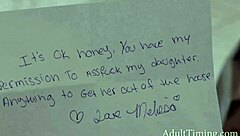 It's Ok honey. You have my
permission To assfuck my daughter
Anything to Get her out of the house
♡ Love Melissa
AdultTiming.com